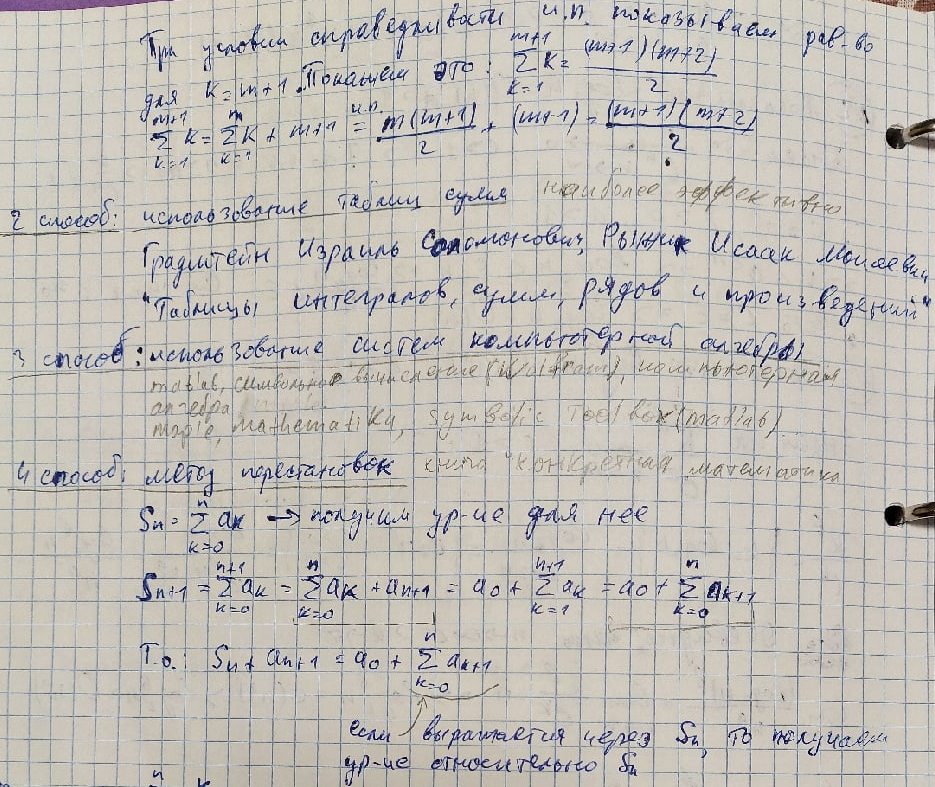 При условии справедливости и.п. показываем рав-во
для k=m+1. Покажем это: \sum_{k=1}^{m+1} k = \frac{(m+1)(m+2)}{2}
\sum_{k=1}^{m+1} k = \sum_{k=1}^{m} k + m+1 \overset{и.п.}{=} \frac{m(m+1)}{2} + (m+1) = \frac{(m+1)(m+2)}{2}
2 способ: использование таблиц сумм наиболее эффективно
Градштейн Израиль Соломонович, Рыжик Исаак Моисеевич
"Таблицы интегралов, сумм, рядов и произведений"
3 способ: использование систем компьютерной алгебры
matlab, символьное вычисление (Wolfram), компьютерная
алгебра
maple, mathematika, Symbolic Toolbox (matlab).
4 способ: метод перестановок книга "Конкретная математика
S_n = \sum_{k=0}^{n} a_k → получим ур-ие для нее
S_{n+1} = \sum_{k=0}^{n+1} a_k = \sum_{k=0}^{n} a_k + a_{n+1} = a_0 + \sum_{k=1}^{n+1} a_k = a_0 + \sum_{k=0}^{n} a_{k+1}
Т.о.: S_n + a_{n+1} = a_0 + \sum_{k=0}^{n} a_{k+1}
если выражается через S_n, то получаем
ур-ие относительно S_n